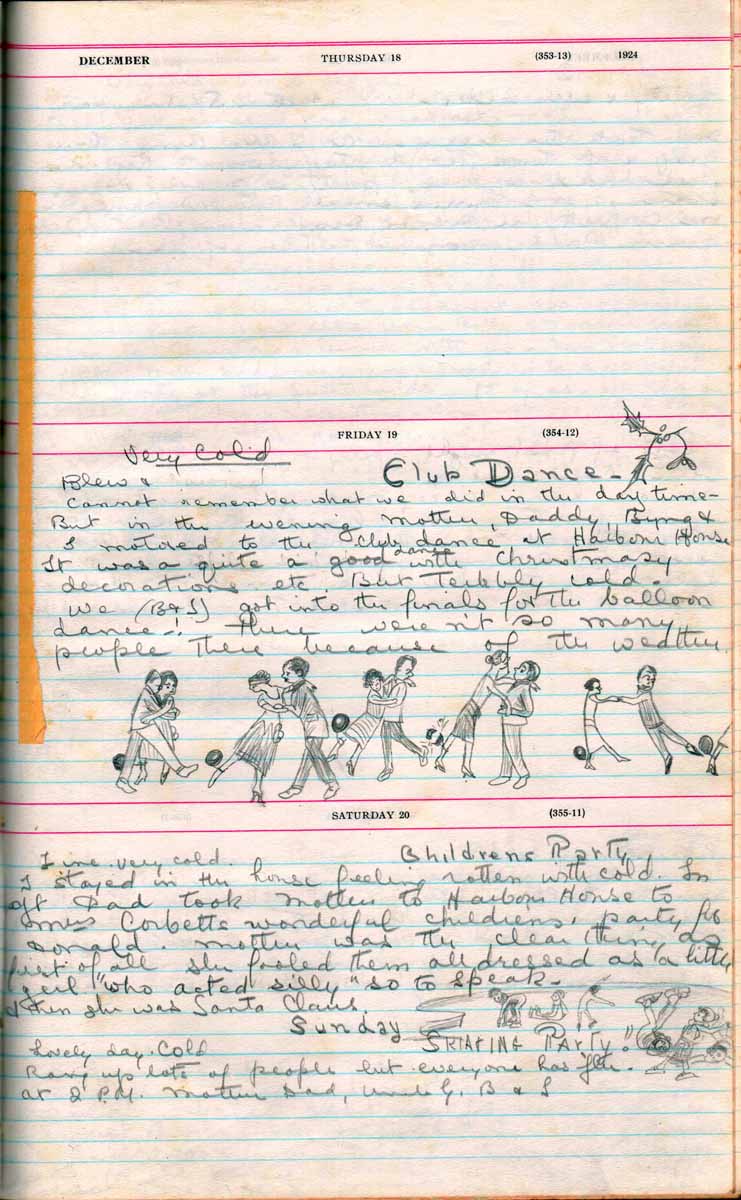 DECEMBER THURSDAY 18 (353-13) 1924
FRIDAY 19 (354-12)
Very Cold
Blew & Club Dance-
Cannot remember what we did in the day time-
But in the evening Mother, Daddy, Byng &
I motored to the Club dance at Harbour House
It was a quite a good dance with Christmasy
decorations etc. But Teribbly cold.
We (B&I) got into the finals for the balloon
dance-! There weren't so many
people there because of the weather
SATURDAY 20 (355-11)
Fine very cold. Childrens Party
I stayed in the house feeling rotten with cold. In
aft Dad took Mother to Harbour House to
Mrs Corbetts wonderful childrens' party for
Donald. Mother was the clear thing as
first of all she fooled them all dressed as a little
girl "who acted silly" so to speak-
& then she was Santa Claus.
Sunday SKATING PARTY!
Lovely day. Cold
Rang up lots of people but everyone has
at 2 P.M. Mother Dad, Uncle G, B & I